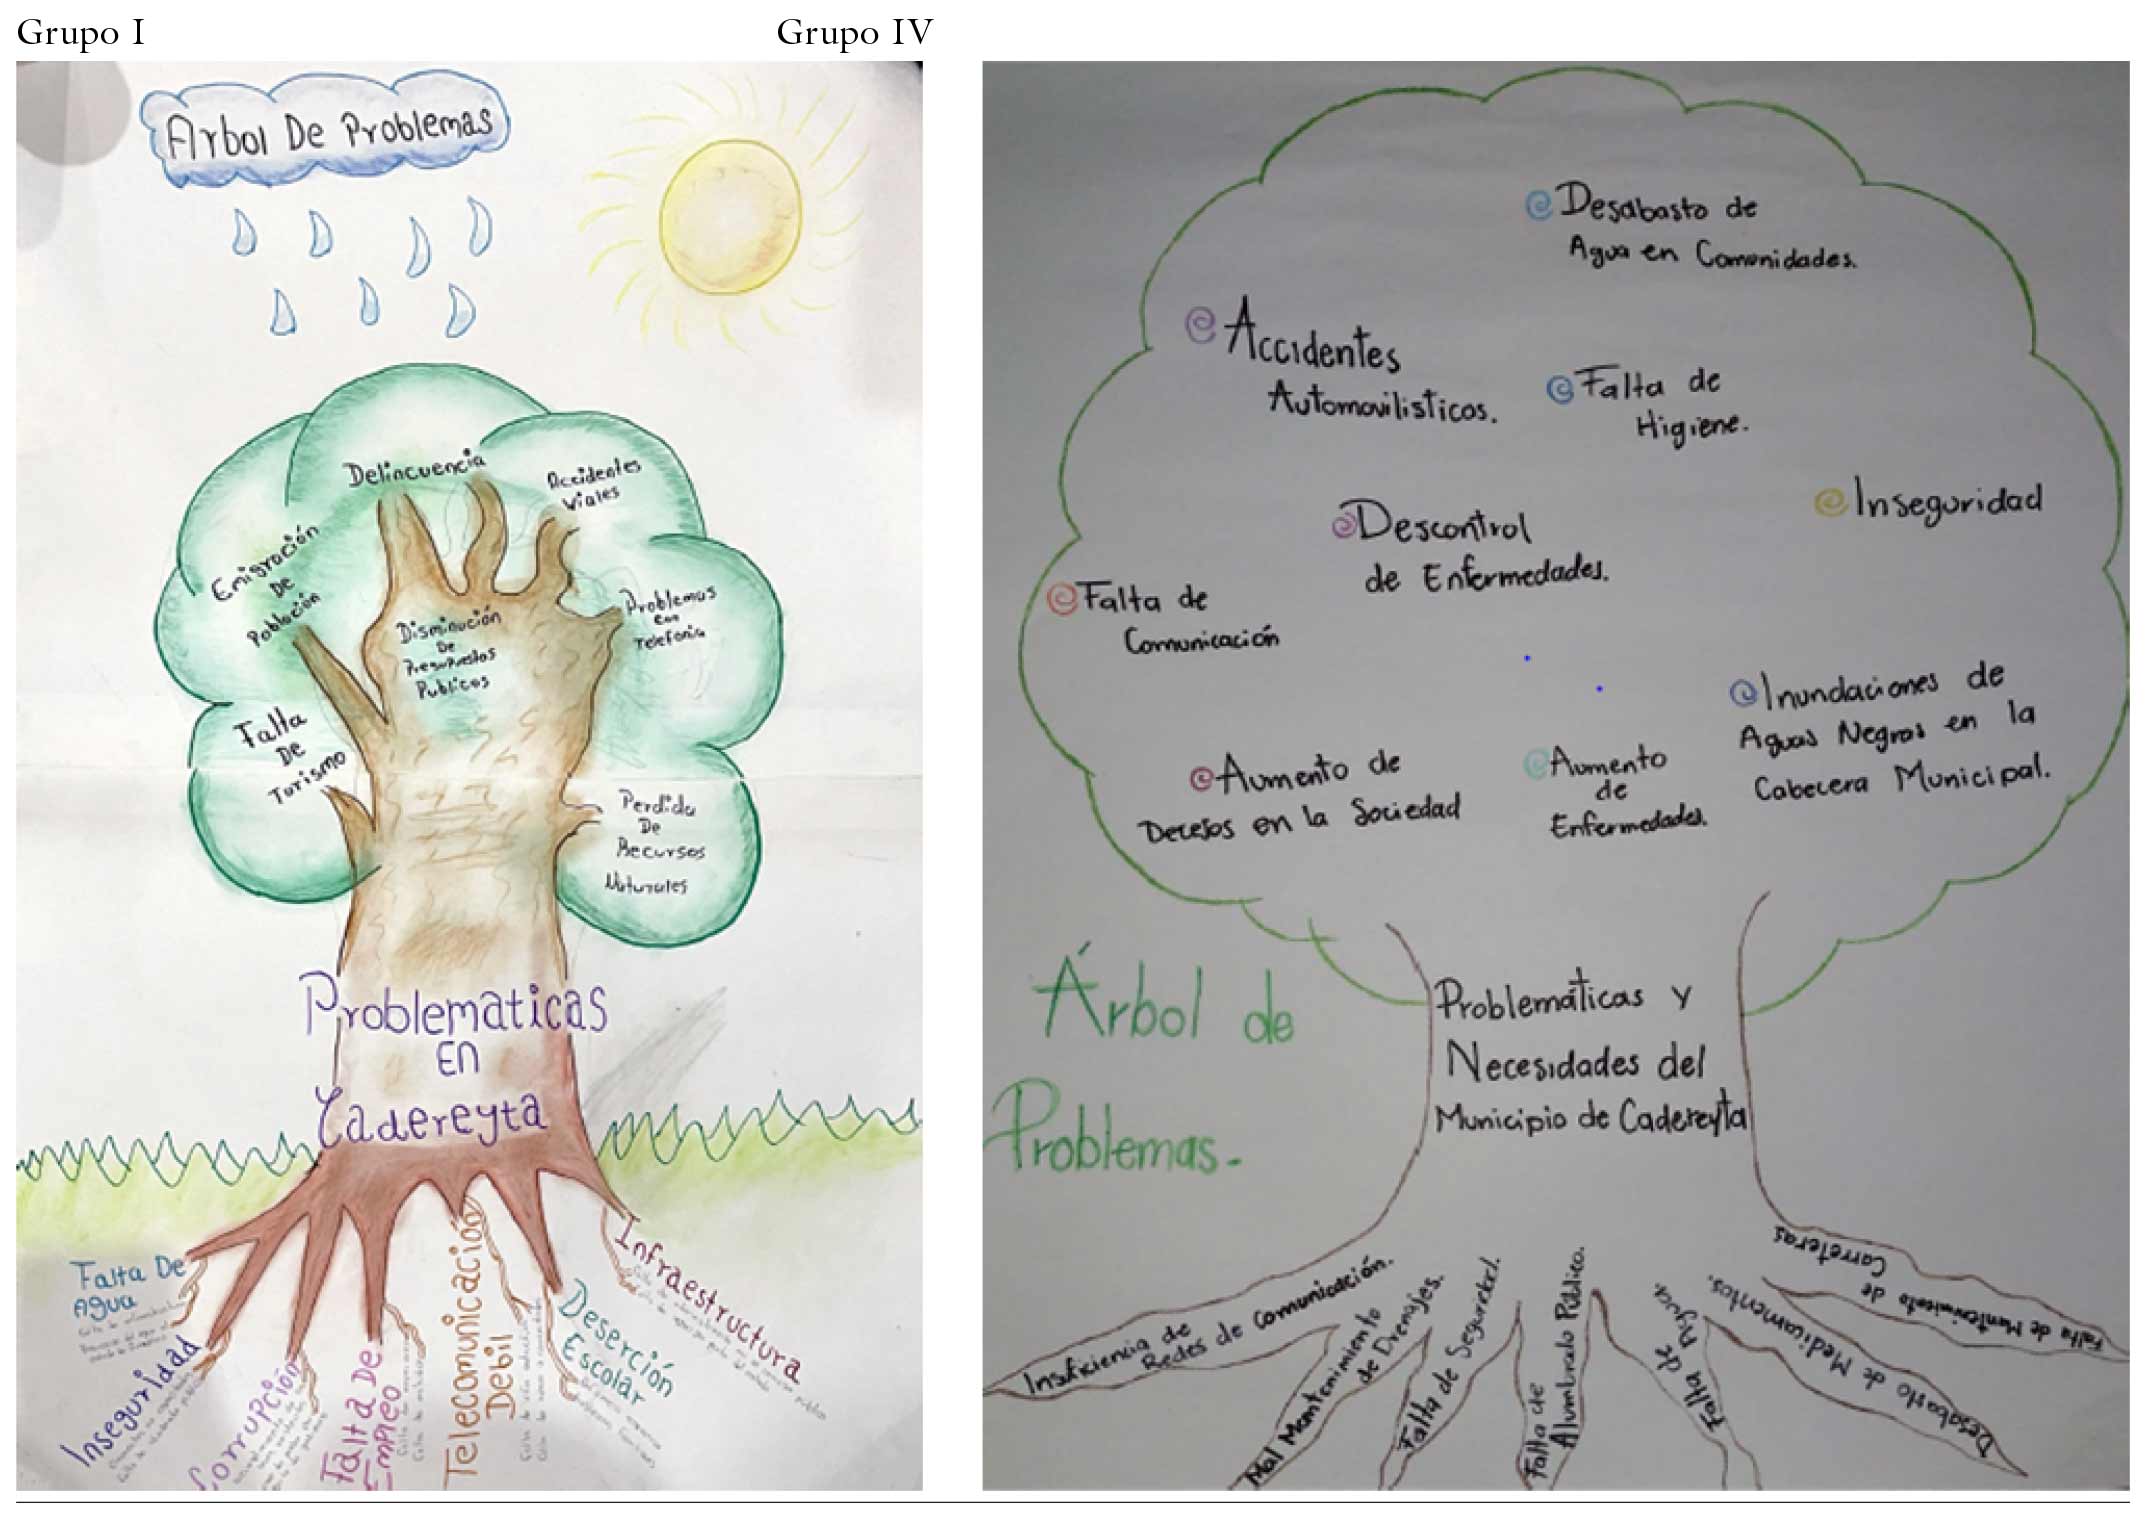 Grupo I
Grupo IV
Arbol De Problemas
Delincuencia
Accidentes
Viales
Emigración
De
Población
Disminución
De
Presupuestos
Publicos
Problemas
con
Telefonia
Falta
De
Turismo
Perdida
De
Recursos
Naturales
Problematicas
EN
Cadereyta
Falta De
Agua
Inseguridad
Corrupción
Falta De
Empleo
Telecomunicación
Debil
Deserción
Escolar
Infraestructura
Desabasto de
Agua en Comunidades.
Accidentes
Automovilisticos.
Falta de
Higiene.
Inseguridad
Descontrol
de Enfermedades.
Falta de
Comunicación
Inundaciones de
Aguas Negras en la
Cabecera Municipal.
Aumento de
Decesos en la Sociedad
Aumento
de
Enfermedades.
Árbol de
Problemas.
Problemáticas y
Necesidades del
Municipio de Cadereyta
Insuficiencia de
Redes de Comunicación.
Mal Mantenimiento
de Drenajes.
Falta de Seguridad.
Falta de
Alumbrado Público.
Falta de Agua.
Desabasto de Medicamentos.
Falta de Mantenimiento de
Carreteras